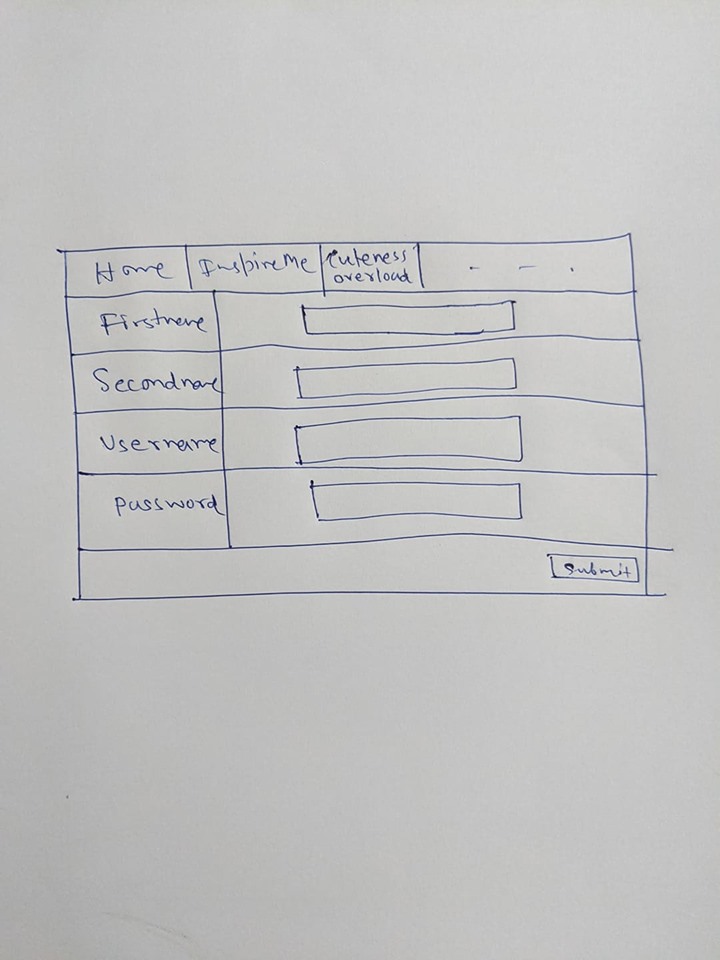 Home
InspireMe
Cuteness
overload
- - .
Firstname
Secondname
Username
password
Submit